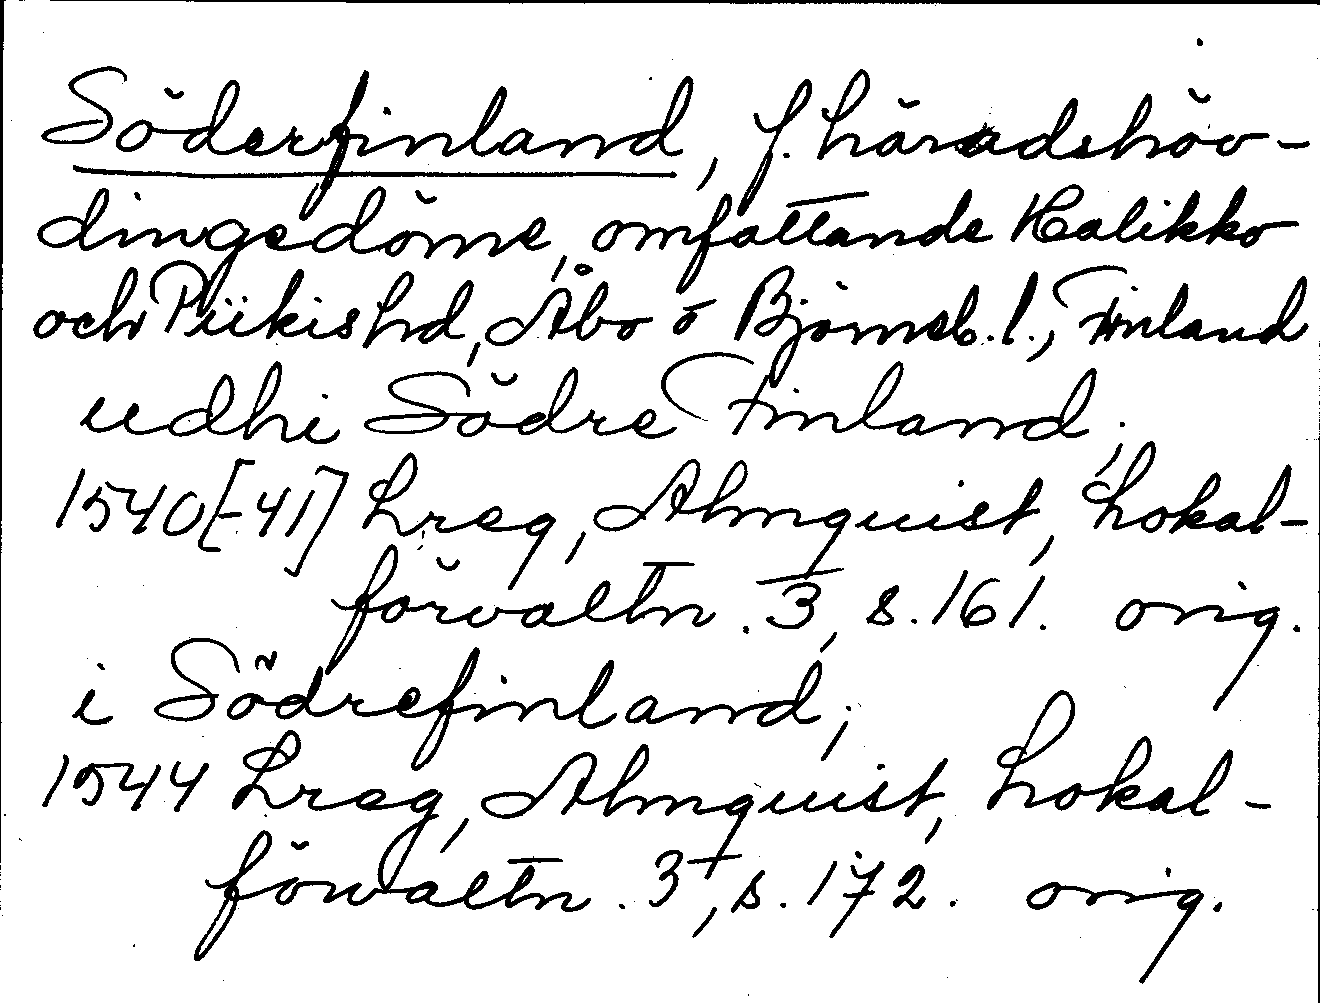 Söderfinland, f. häradshöv-
dingedöme, omfattande Halikko
och Piikis hd, Åbo o Björneb. l., Finland
udhi Södre Finland,
1540[-41] Lreg, Almquist, Lokal-
förvaltn. 3, s. 161. orig.
i Södrefinland;
1544 Lreg, Almquist, Lokal-
förvaltn. 3, s. 172. orig.